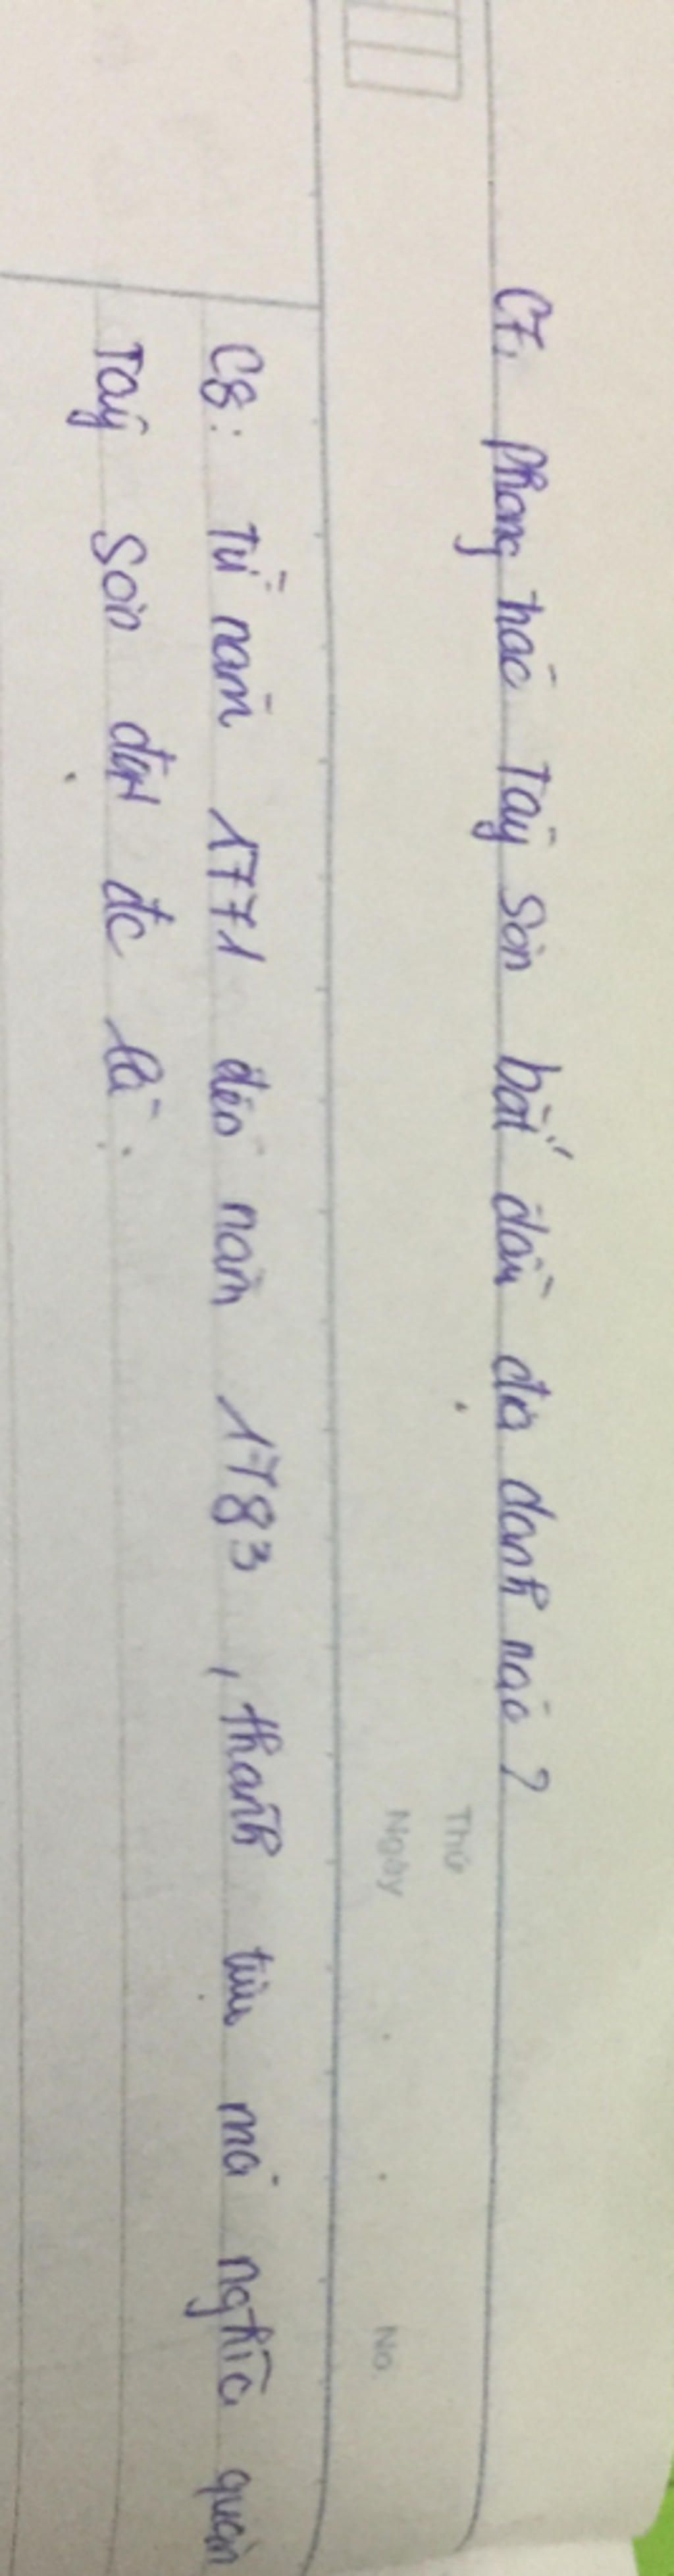 C7, phong hào Tây Sơn bắt đầu địa danh nào?
Thứ
Ngày
No.
C8: Từ năm 1771 đến năm 1783, thành tựu mà nghĩa quân
Tây Sơn đạt đc là: